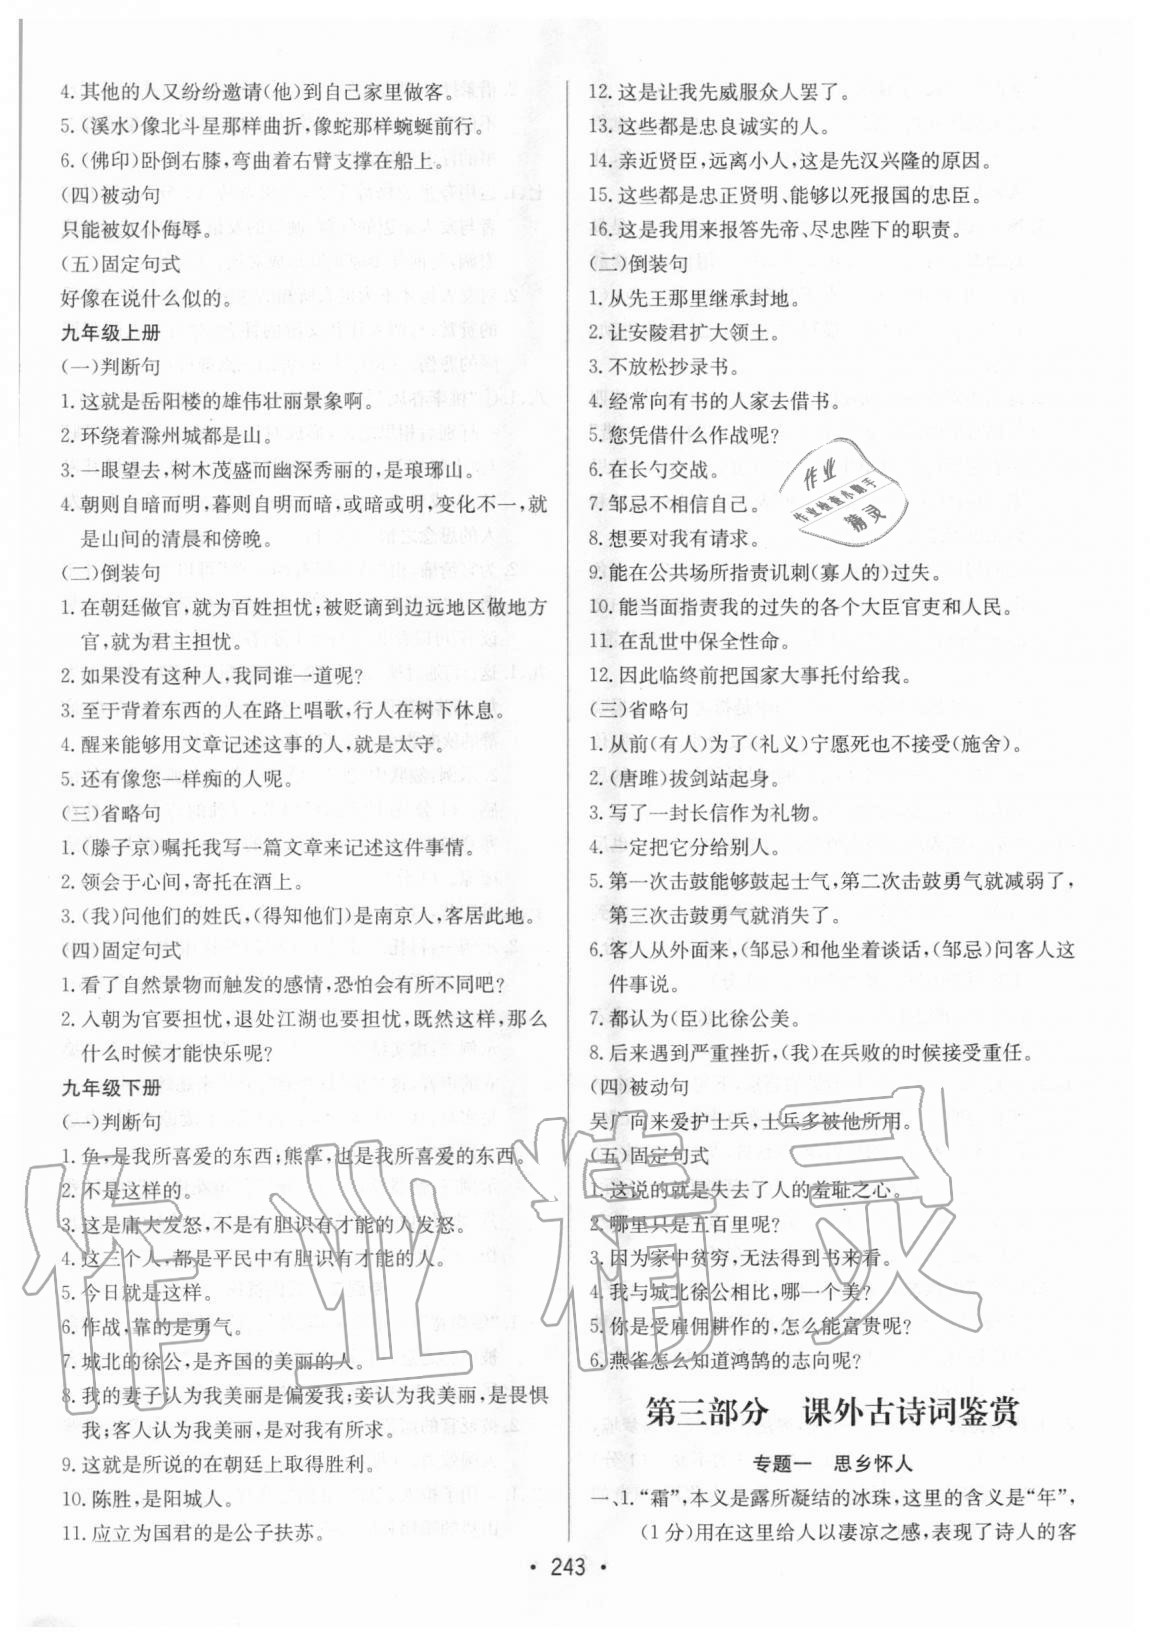 4. 其他的人又纷纷邀请(他)到自己家里做客。
5. (溪水)像北斗星那样曲折,像蛇那样蜿蜒前行。
6. (佛印)卧倒右膝,弯曲着右臂支撑在船上。
(四)被动句
只能被奴仆侮辱。
(五)固定句式
好像在说什么似的。
九年级上册
(一)判断句
1. 这就是岳阳楼的雄伟壮丽景象啊。
2. 环绕着滁州城都是山。
3. 一眼望去,树木茂盛而幽深秀丽的,是琅琊山。
4. 朝则自暗而明,暮则自明而暗,或暗或明,变化不一,就
是山间的清晨和傍晚。
(二)倒装句
1. 在朝廷做官,就为百姓担忧;被贬谪到边远地区做地方
官,就为君主担忧。
2. 如果没有这种人,我同谁一道呢?
3. 至于背着东西的人在路上唱歌,行人在树下休息。
4. 醒来能够用文章记述这事的人,就是太守。
5. 还有像您一样痴的人呢。
(三)省略句
1. (滕子京)嘱托我写一篇文章来记述这件事情。
2. 领会于心间,寄托在酒上。
3. (我)问他们的姓氏,(得知他们)是南京人,客居此地。
(四)固定句式
1. 看了自然景物而触发的感情,恐怕会有所不同吧?
2. 入朝为官要担忧,退处江湖也要担忧,既然这样,那么
什么时候才能快乐呢?
九年级下册
(一)判断句
1. 鱼,是我所喜爱的东西;熊掌,也是我所喜爱的东西。
2. 不是这样的。
3. 这是庸夫发怒,不是有胆识有才能的人发怒。
4. 这三个人,都是平民中有胆识有才能的人。
5. 今日就是这样。
6. 作战,靠的是勇气。
7. 城北的徐公,是齐国的美丽的人。
8. 我的妻子认为我美丽是偏爱我;妾认为我美丽,是畏惧
我;客人认为我美丽,是对我有所求。
9. 这就是所说的在朝廷上取得胜利。
10. 陈胜,是阳城人。
11. 应立为国君的是公子扶苏。
12. 这是让我先威服众人罢了。
13. 这些都是忠良诚实的人。
14. 亲近贤臣,远离小人,这是先汉兴隆的原因。
15. 这些都是忠正贤明、能够以死报国的忠臣。
16. 这是我用来报答先帝、尽忠陛下的职责。
(二)倒装句
1. 从先王那里继承封地。
2. 让安陵君扩大领土。
3. 不放松抄录书。
4. 经常向有书的人家去借书。
5. 您凭借什么作战呢?
6. 在长勺交战。
7. 邹忌不相信自己。
8. 想要对我有请求。
9. 能在公共场所指责讥刺(寡人的)过失。
10. 能当面指责我的过失的各个大臣官吏和人民。
11. 在乱世中保全性命。
12. 因此临终前把国家大事托付给我。
(三)省略句
1. 从前(有人)为了(礼义)宁愿死也不接受(施舍)。
2. (唐雎)拔剑站起身。
3. 写了一封长信作为礼物。
4. 一定把它分给别人。
5. 第一次击鼓能够鼓起士气,第二次击鼓勇气就减弱了,
第三次击鼓勇气就消失了。
6. 客人从外面来,(邹忌)和他坐着谈话,(邹忌)问客人这
件事说。
7. 都认为(臣)比徐公美。
8. 后来遇到严重挫折,(我)在兵败的时候接受重任。
(四)被动句
吴广向来爱护士兵,士兵多被他所用。
(五)固定句式
1. 这说的就是失去了人的羞耻之心。
2. 哪里只是五百里呢?
3. 因为家中贫穷,无法得到书来看。
4. 我与城北徐公相比,哪一个美?
5. 你是受雇佣耕作的,怎么能富贵呢?
6. 燕雀怎么知道鸿鹄的志向呢?
第三部分 课外古诗词鉴赏
专题一 思乡怀人
一、1. “霜”,本义是露所凝结的冰珠,这里的含义是“年”,
(1分)用在这里给人以凄凉之感,表现了诗人的客
• 243 •
作业
作业检查小助手
精灵
作业精灵